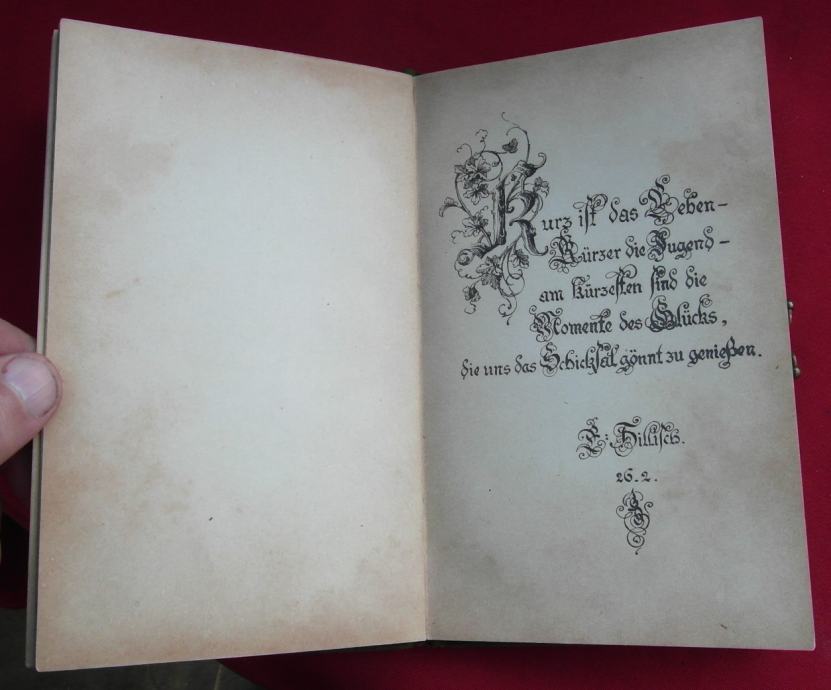 Kurz ist das Leben –
Kürzer die Jugend –
am kürzesten sind die
Momente des Glücks,
die uns das Schicksal gönnt zu genießen.
26.2.